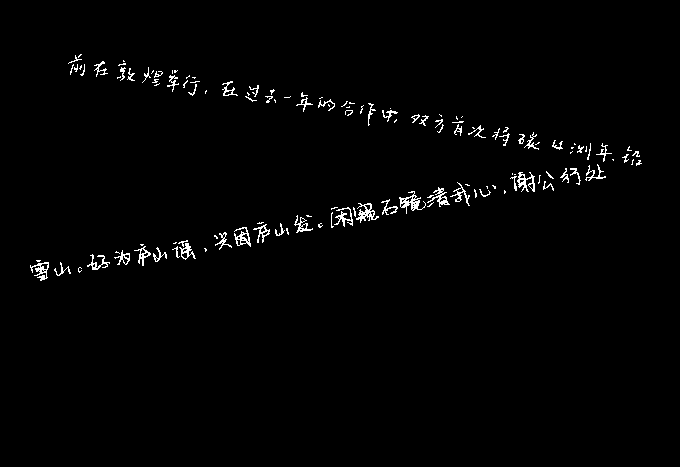 前在敦煌举行,在过去一年的合作中,双方首次将碳14测年、铅
雪山。好为庐山谣,兴因庐山发。闲窥石镜清我心,谢公行处